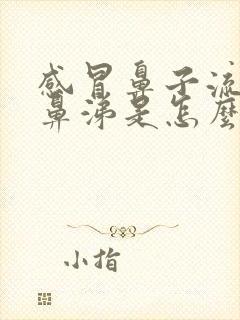 感冒鼻子流
鼻涕是怎麼
小指